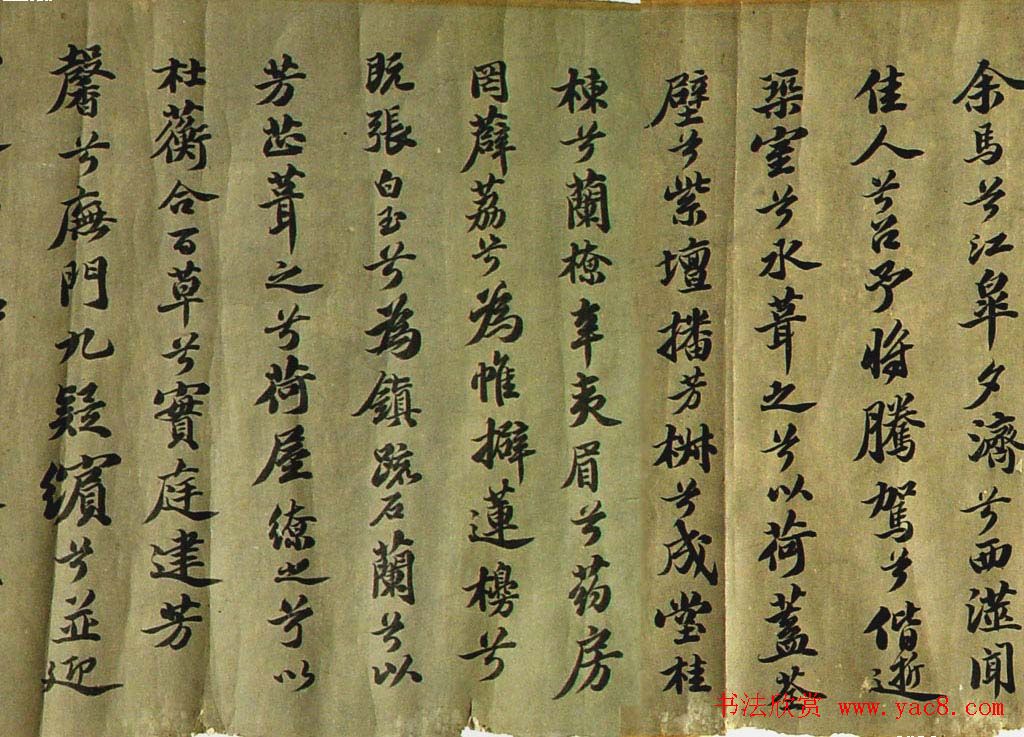 余馬兮江皋夕濟兮西澨聞
佳人兮召予將騰駕兮偕逝
築室兮水葺之兮以荷蓋荃
壁兮紫壇播芳椒兮成堂桂
棟兮蘭橑辛夷眉兮葯房
罔薜荔兮為帷擗蓮櫋兮
既張白玉兮為鎮疏石蘭兮以
芳芷葺之兮荷屋繚之兮以
杜蘅合百草兮實庭建芳
馨兮廡門九疑繽兮並迎
书法欣赏 www.yac8.com